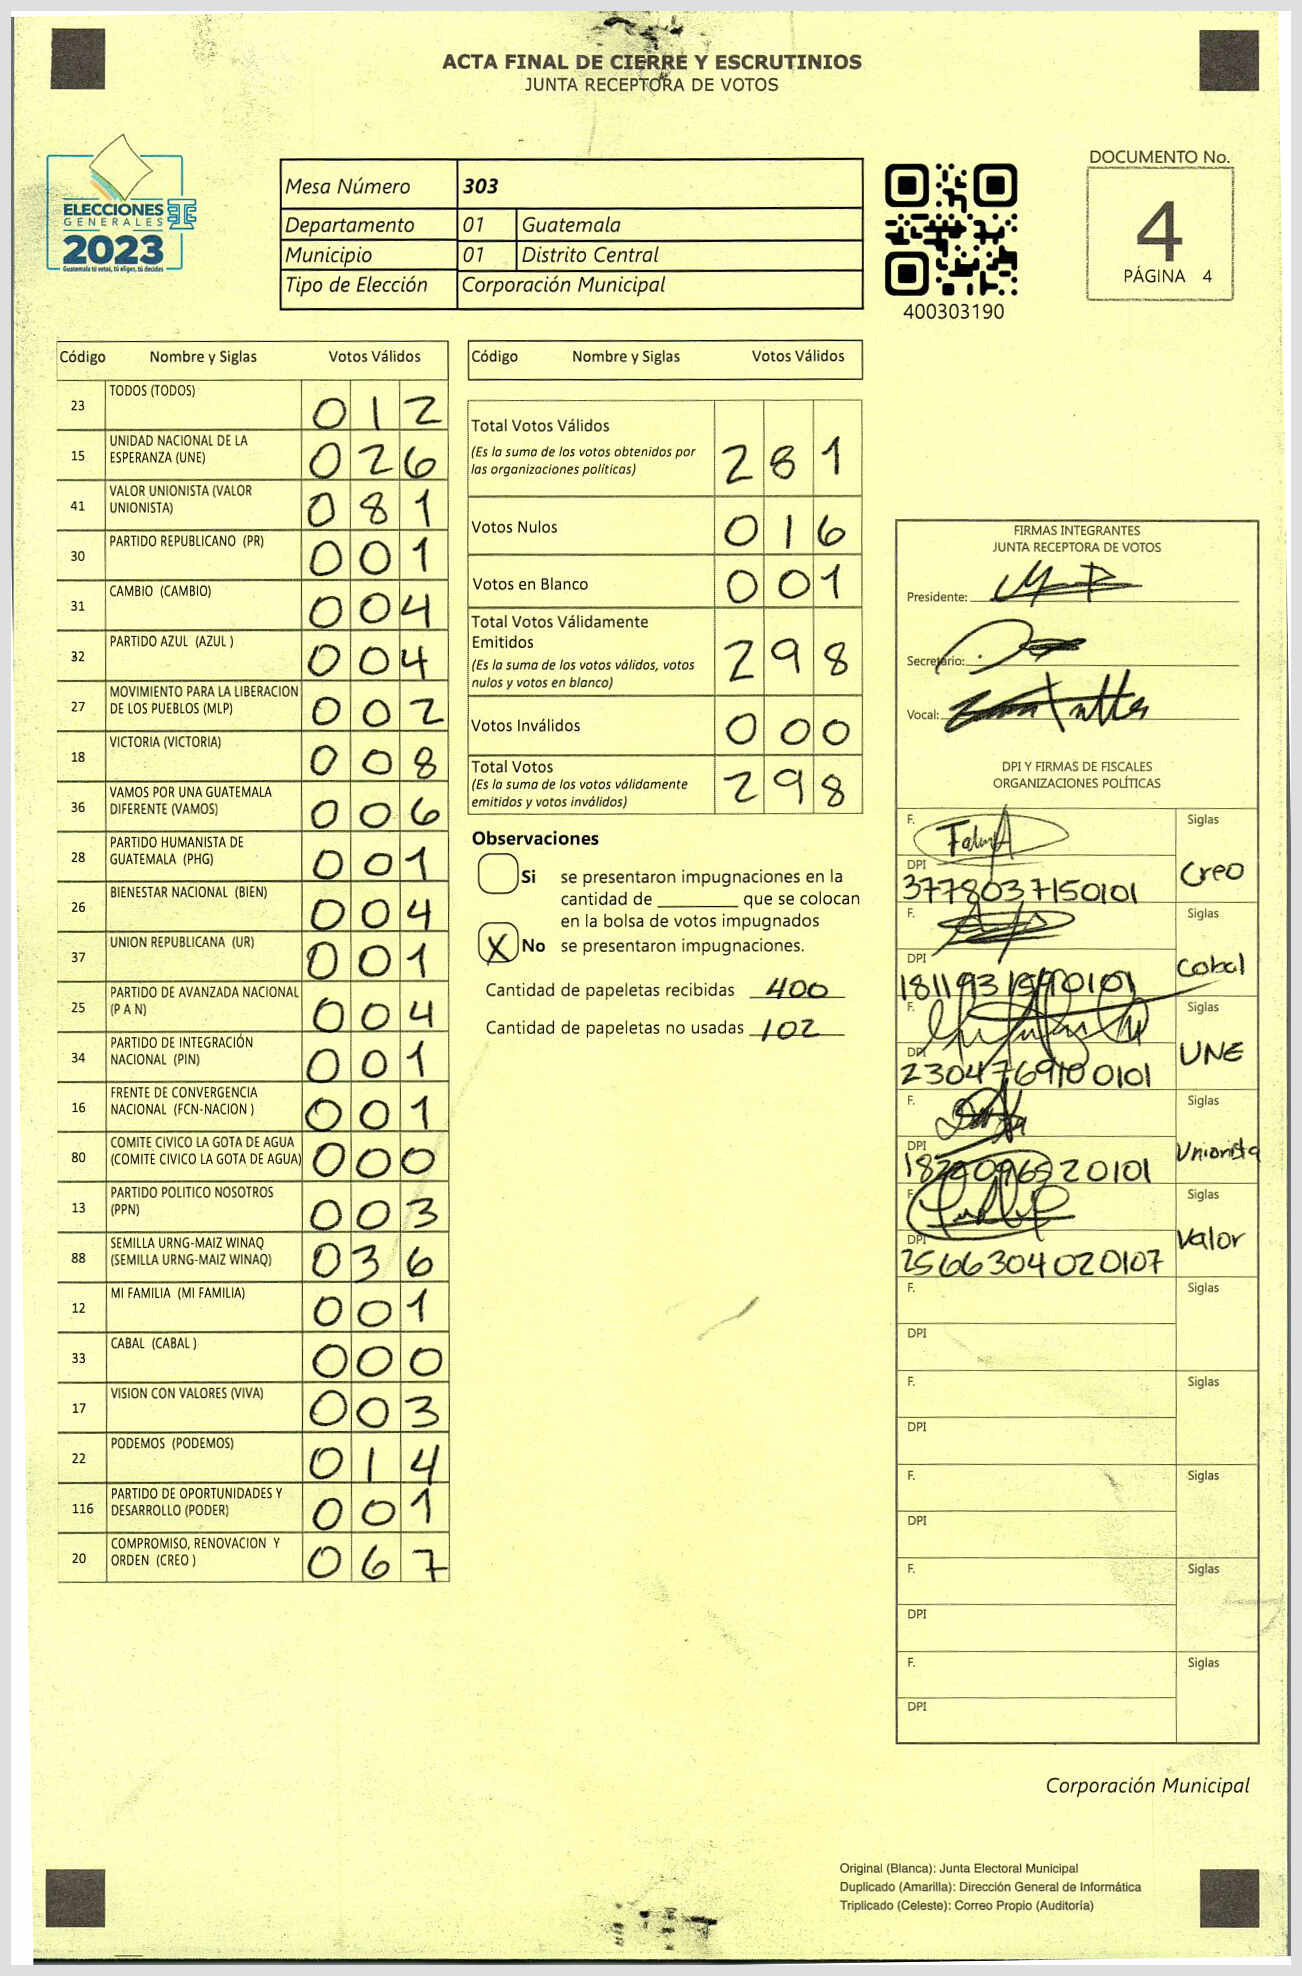 ACTA FINAL DE CIERRE Y ESCRUTINIOS
JUNTA RECEPTORA DE VOTOS
ELECCIONES
GENERALES
2023
Guatemala tú votas, tú eliges, tú decides
Mesa Número 303
Departamento 01 Guatemala
Municipio 01 Distrito Central
Tipo de Elección Corporación Municipal
400303190
DOCUMENTO No.
4
PÁGINA 4
Código Nombre y Siglas Votos Válidos
23 TODOS (TODOS) 012
15 UNIDAD NACIONAL DE LA
ESPERANZA (UNE) 026
41 VALOR UNIONISTA (VALOR
UNIONISTA) 081
30 PARTIDO REPUBLICANO (PR) 001
31 CAMBIO (CAMBIO) 004
32 PARTIDO AZUL (AZUL ) 004
27 MOVIMIENTO PARA LA LIBERACION
DE LOS PUEBLOS (MLP) 002
18 VICTORIA (VICTORIA) 008
36 VAMOS POR UNA GUATEMALA
DIFERENTE (VAMOS) 006
28 PARTIDO HUMANISTA DE
GUATEMALA (PHG) 001
26 BIENESTAR NACIONAL (BIEN) 004
37 UNION REPUBLICANA (UR) 001
25 PARTIDO DE AVANZADA NACIONAL
(P A N) 004
34 PARTIDO DE INTEGRACIÓN
NACIONAL (PIN) 001
16 FRENTE DE CONVERGENCIA
NACIONAL (FCN-NACION ) 001
80 COMITE CIVICO LA GOTA DE AGUA
(COMITE CIVICO LA GOTA DE AGUA) 000
13 PARTIDO POLITICO NOSOTROS
(PPN) 003
88 SEMILLA URNG-MAIZ WINAQ
(SEMILLA URNG-MAIZ WINAQ) 036
12 MI FAMILIA (MI FAMILIA) 001
33 CABAL (CABAL ) 000
17 VISION CON VALORES (VIVA) 003
22 PODEMOS (PODEMOS) 014
116 PARTIDO DE OPORTUNIDADES Y
DESARROLLO (PODER) 001
20 COMPROMISO, RENOVACION Y
ORDEN (CREO ) 067
Código Nombre y Siglas Votos Válidos
Total Votos Válidos
(Es la suma de los votos obtenidos por
las organizaciones políticas) 281
Votos Nulos 016
Votos en Blanco 001
Total Votos Válidamente
Emitidos
(Es la suma de los votos válidos, votos
nulos y votos en blanco) 298
Votos Inválidos 000
Total Votos
(Es la suma de los votos válidamente
emitidos y votos inválidos) 298
Observaciones
Si se presentaron impugnaciones en la
cantidad de ________ que se colocan
en la bolsa de votos impugnados
X No se presentaron impugnaciones.
Cantidad de papeletas recibidas 400
Cantidad de papeletas no usadas 102
FIRMAS INTEGRANTES
JUNTA RECEPTORA DE VOTOS
Presidente:
Secretario:
Vocal:
DPI Y FIRMAS DE FISCALES
ORGANIZACIONES POLÍTICAS
F. Siglas
Creo
DPI
3778037150101
F. Siglas
Cabal
DPI
F. Siglas
UNE
DPI
F. Siglas
Unionista
DPI
F. Siglas
Valor
DPI
2566304020107
F. Siglas
DPI
F. Siglas
DPI
F. Siglas
DPI
F. Siglas
DPI
F. Siglas
DPI
Corporación Municipal
Original (Blanca): Junta Electoral Municipal
Duplicado (Amarilla): Dirección General de Informática
Triplicado (Celeste): Correo Propio (Auditoría)